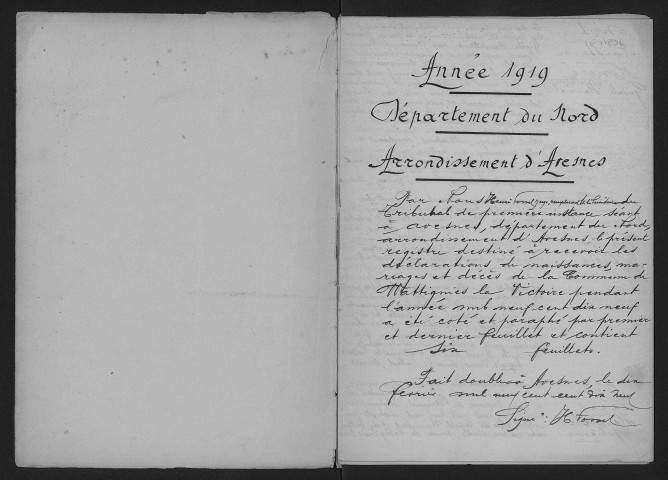 Année 1919
Département du Nord
Arrondissement d'Avesnes
Par Nous Henri juge, remplaçant le Président du
Tribunal de première instance séant
à Avesnes, département du Nord,
arrondissement d'Avesnes le présent
registre destiné à recevoir les
déclarations de naissances, ma-
riages et décès de la Commune de
Wattignies la Victoire pendant
l'année mil neuf cent dix neuf
a été coté et paraphé par premier
et dernier feuillet et contient
six feuillets.
Fait double à Avesnes, le dix
février mil neuf cent cent dix neuf
Signé: H